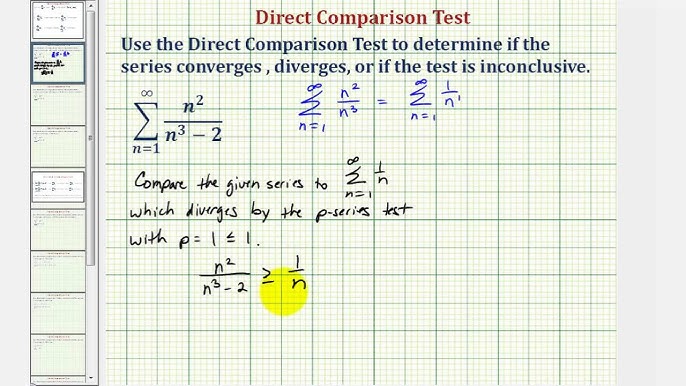 Direct Comparison Test
Use the Direct Comparison Test to determine if the
series converges , diverges, or if the test is inconclusive.
∞ ∑ n=1 n²/(n³ − 2)
∞ ∑ n=1 n²/n³ = ∞ ∑ n=1 1/n¹
Compare the given series to ∞ ∑ n=1 1/n
which diverges by the p-series test
with p = 1 ≤ 1.
n²/(n³ − 2) ≥ 1/n